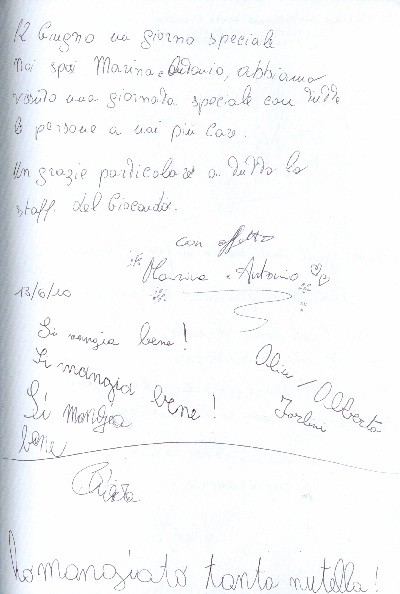 12 Giugno un giorno speciale
Noi sposi Marina e Antonio, abbiamo
vissuto una giornata speciale con tutte
le persone a noi più care.
Un grazie particolare a tutto lo
staff del Gioconda.
con affetto
Marina e Antonio
13/6/10
Si mangia bene!
Si mangia bene!
Alberto
Si mangia
bene
Ho mangiato tanta nutella!